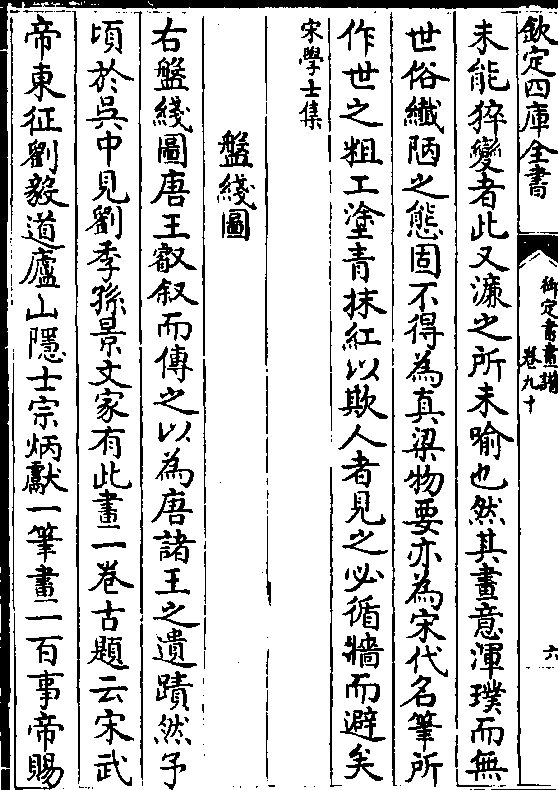 欽定四庫全書
御定書畫譜
卷九十
六
未能猝變者此又濂之所未喻也然其畫意渾璞而無
世俗纖陋之態固不得為真梁物要亦為宋代名筆所
作世之粗工塗青抹紅以欺人者見之必循牆而避矣
宋學士集
盤綫圖
右盤綫圖唐王叡叙而傳之以為唐諸王之遺蹟然予
頃於吳中見劉季孫景文家有此畫一卷古題云宋武
帝東征劉毅道廬山隱士宗炳獻一筆畫一百事帝賜